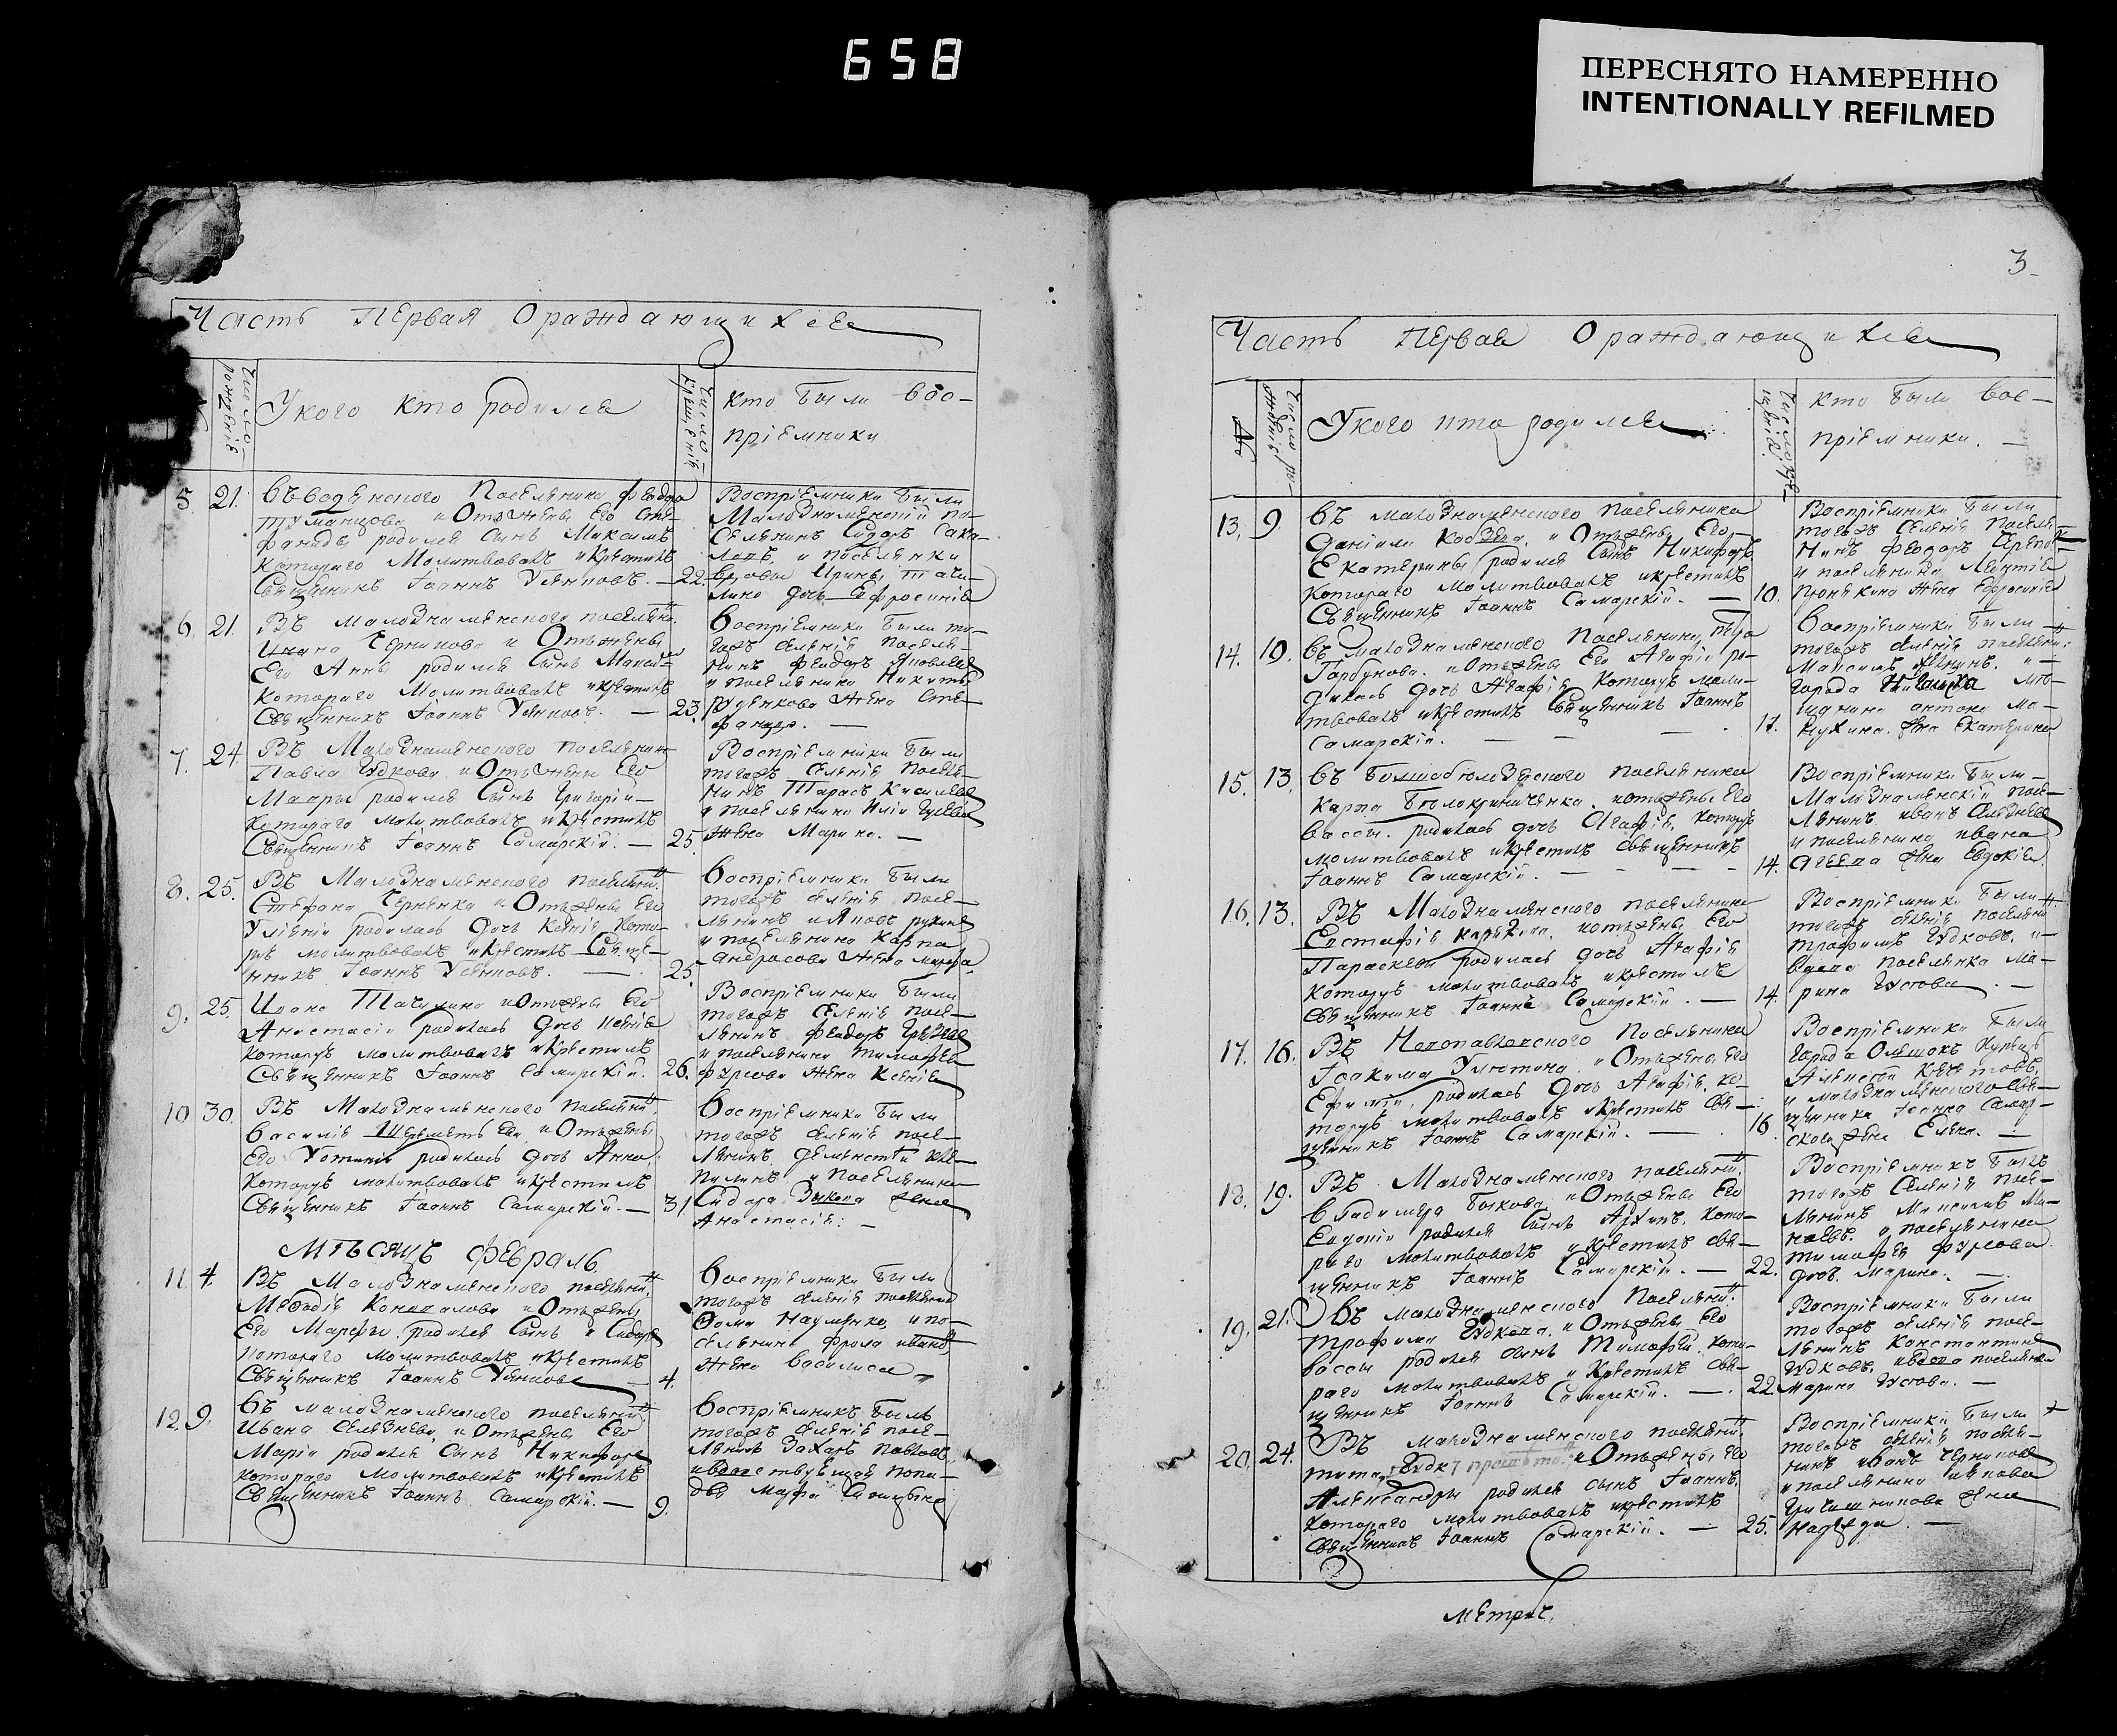 658
ПЕРЕСНЯТО НАМЕРЕННО
INTENTIONALLY REFILMED
Часть Первая О раждающихся
Число рождения
У кого кто родился
Число крещения
кто были вос-
пріемники
5. 21.
Поселянина Феодора
и От жены Его Сте-
фаниды родился Сынъ Максимъ
котораго Молитвовалъ и крестилъ
Священникъ Іоаннъ Устиновъ. — 22.
Воспріемники были
Малознаменскій по-
селянинъ Сидоръ Сака-
и поселянки
вдовы Ирины
дочь Ефросинія
6. 21.
Въ Малознаменского поселяни:
и От жены
Его Анны родился Сынъ
котораго Молитвовалъ и крестилъ
Священникъ Іоаннъ Устиновъ. — 23.
Воспріемники были то-
гожъ селенія поселя-
нинъ Феодоръ Яковлевъ
и поселянина Никиты
Руденкова жена Сте-
фанида. —
7. 24.
Въ Малознаменского поселянина
Павла Гудкова и От жены Его
Мавры родился Сынъ Григорій —
котораго молитвовалъ и крестилъ
Священникъ Іоаннъ Самарскій. — 25.
Воспріемники были
тогожъ селенія поселя-
нинъ Тарасъ Киселевъ
и поселянина Иліи Гусева
жена Марина. —
8. 25.
Въ Малознаменского поселяни:
Стефана Черненка и От жены Его
родилась дочь Ксенія кото-
ру молитвовалъ и крестилъ Свяще-
нникъ Іоаннъ Устиновъ. — 25.
Воспріемники были
тогожъ селенія посе-
лянинъ
и поселянина Карпа
жена
9. 25.
Ивана и От жены Его
Анастасіи родилась дочь Ксенія
котору молитвовалъ и крестилъ
Священникъ Іоаннъ Самарскій. 26.
Воспріемники были
тогожъ селенія посе-
лянинъ Феодоръ
и поселянина Тимофея
Фурсова жена Ксенія
10 30.
Въ Малознаменского поселяни:
Василія и От жены
Его родилась дочь Анна,
котору молитвовалъ и крестилъ
Священникъ Іоаннъ Самарскій. — 31
Воспріемники были
тогожъ селенія посе-
лянинъ
и поселянина
Сидора Зыкова жена
Анастасія. —
МѢсяцъ Февраль.
11. 4.
Въ Малознаменского поселяни:
Мефодія Коновалова и От жены
Его Марфы родился Сынъ Сидоръ
котораго молитвовалъ и крестилъ
Священникъ Іоаннъ Устиновъ 4.
Воспріемники были
тогожъ селенія поселянинъ
Фома Науменко, и по-
селянина Фрола
жена Василиса
12. 9.
Въ малознаменского поселяни:
Ивана Селезнева, и От жены Его
Маріи родился Сынъ Никифоръ
котораго Молитвовалъ и крестилъ
Священникъ Іоаннъ Самарскій. — 9.
Воспріемникъ былъ
тогожъ селенія посе-
лянинъ Захаръ Павловъ
попа-
дья Марфа
3.
Часть Первая О раждающихся
№
Число рожденія
У кого кто родился
кто были вос-
пріемники. —
13. 9
Въ малознаменского поселянина
Даніила Кобзева, и От жены Его
Екатерины родился Сынъ Никифоръ
котораго молитвовалъ и крестилъ
Священникъ Іоаннъ Самарскій. — 10.
Воспріемники были
тогожъ селенія поселя-
нинъ Феодоръ
и поселянина Леонтія
жена Ефросинія
14. 10.
Въ малознаменского Поселянина Петра
Горбунова. и От жены Его Агафіи ро-
дилась дочь Агафія котору моли-
твовалъ и крестилъ Священникъ Іоаннъ
Самарскій. — — — 11.
Воспріемники были
тогожъ селенія поселяни:
Максимъ и
города мѣ-
щанина Антона
жена Екатерина
15. 13.
Въ поселянина
Карпа Билокриниченка. и от жены Его
Вассы. родилась дочь Агафія, котору
молитвовалъ и крестилъ священникъ
Іоаннъ Самарскій. — — 14.
Воспріемники были —
Малознаменскій посе-
лянинъ Иванъ Селезневъ
и поселянина Ивана
жена Евдокія.
16. 13.
Въ Малознаменского поселянина
Евстафія и от жены Его
Параскевы родилась дочь Агафія
котору молитвовалъ и крестилъ
Священникъ Іоаннъ Самарскій. — 14.
Воспріемники были
тогожъ селенія поселяни:
Трофимъ Гудковъ. и
вдова поселянка Ма-
рина Гусова. —
17. 16.
Въ поселянина
Іоакима Улютина. и От жены Его
Ефиміи, родилась дочь Агафія, ко-
тору молитвовалъ и крестилъ Свя-
щенникъ Іоаннъ Самарскій. — 16.
Воспріемники были
города Олешокъ купецъ
Алексѣй
и малознаменского свя-
щенника Іоанна Самар-
скаго жена Елена. —
18. 19.
Въ Малознаменского поселяни:
Владимера Быкова, и От жены Его
Евдокіи родился Сынъ Архипъ, кото-
раго молитвовалъ и крестилъ свя-
щенникъ Іоаннъ Самарскій. — 22.
Воспріемникъ былъ
тогожъ селенія посе-
лянинъ Максимъ Ми-
наевъ. и поселянина
Тимофея Фурсова
дочь Марина. —
19. 21.
Въ малознаменского поселяни:
Трофима Гудкова. и От жены Его
Вассы родился сынъ Тимофей. кото-
раго молитвовалъ и крестилъ Свя-
щенникъ Іоаннъ Самарскій. — 22.
Воспріемники были
тогожъ селенія посе-
лянинъ Константинъ
Гудковъ. и вдова поселянка
Марина Гусова. —
20. 24.
Въ малознаменского поселяни:
Тита и От жены Его
Александры родился сынъ Іоаннъ,
котораго молитвовалъ и крестилъ
Священникъ Іоаннъ Самарскій. — 25.
Воспріемники были
тогожъ селенія поселя-
нинъ Иванъ Черниковъ
и поселянина Якова
жена
Надежда. —
Метрич.